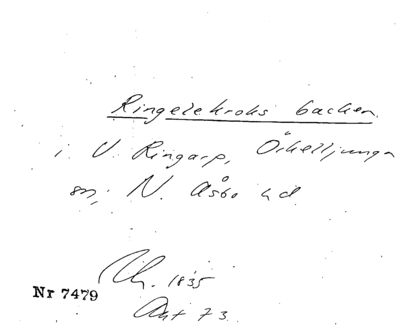 Ringelekroks backen
i V. Ringarp, Örkelljunga
sn, N. Åsbo hd
Ch. 1835
Nr 7479
Akt 73